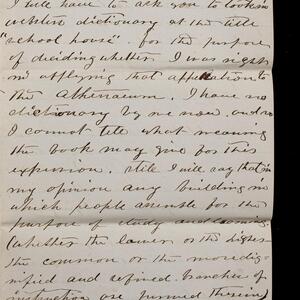 I will have to ask you to look in
webster dictionary at the title
"school house" for the purpose
of deciding whether I was right
in applying that appellation to
the Athenaeum. I have no
dictionary by me now, and so
I cannot tell what meaning
the book may give for this
expression. Still I will say that in
my opinion any building in
which people assemble for the
purpose of study and learning
(whether the lower or the higher
the common or the more dig-
nified and refined branches of
instruction are pursued therein)